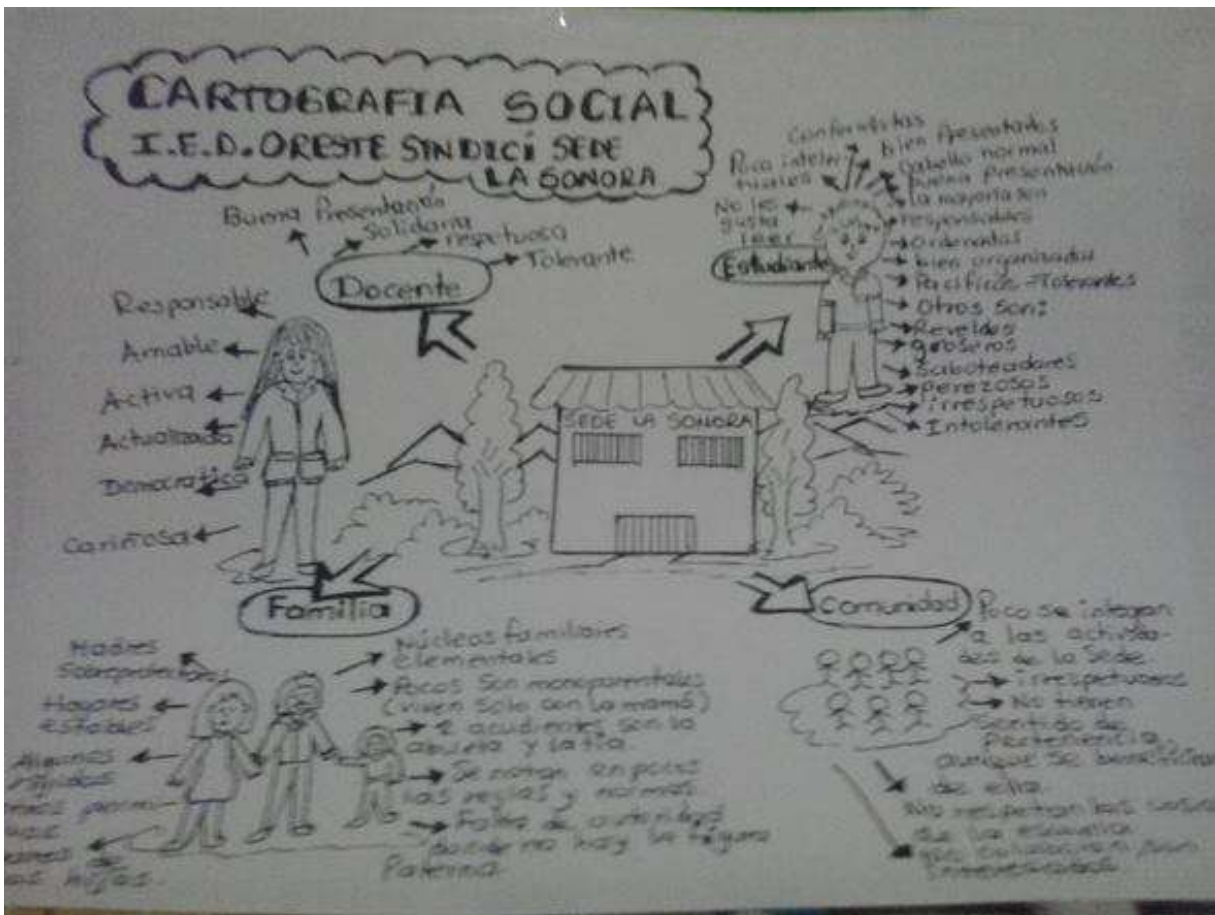 CARTOGRAFIA SOCIAL
I.E.D. ORESTE SINDICÍ SEDE
LA SONORA
Docente
Buena Presentación
Solidaria
respetuosa
Tolerante
Responsable
Amable
Activa
Actualizada
Democratica
Cariñosa
Estudiante
No les
gusta
leer
Poco intelec
tuales
Conformistas
bien Presentados
Cabello normal
buena Presentación
la mayoria son
responsables
ordenadas
bien organizadas
Pacificos - Tolerantes
Otros son:
Reveldes
groseros
Saboteadores
perezosos
irrespetuosos
Intolerantes
SEDE LA SONORA
Familia
Madres
Sobreprotectoras
Hogares
estables
Algunos
rigidos
de
hijas.
Núcleos familiares
elementales
Pocos Son monoparentales
(viven solo con la mamá)
2 acudientes son la
abuela y la tia.
Se notan en pocos
las reglas y normas
Falta de autoridad
no hay la figura
Paterna
Comunidad
Poco se integran
a las activida-
des de la Sede.
irrespetuosos
No tienen
Sentido de
Pertenencia,
aunque se benefician
de ella.
No respetan las cosas
de la escuela